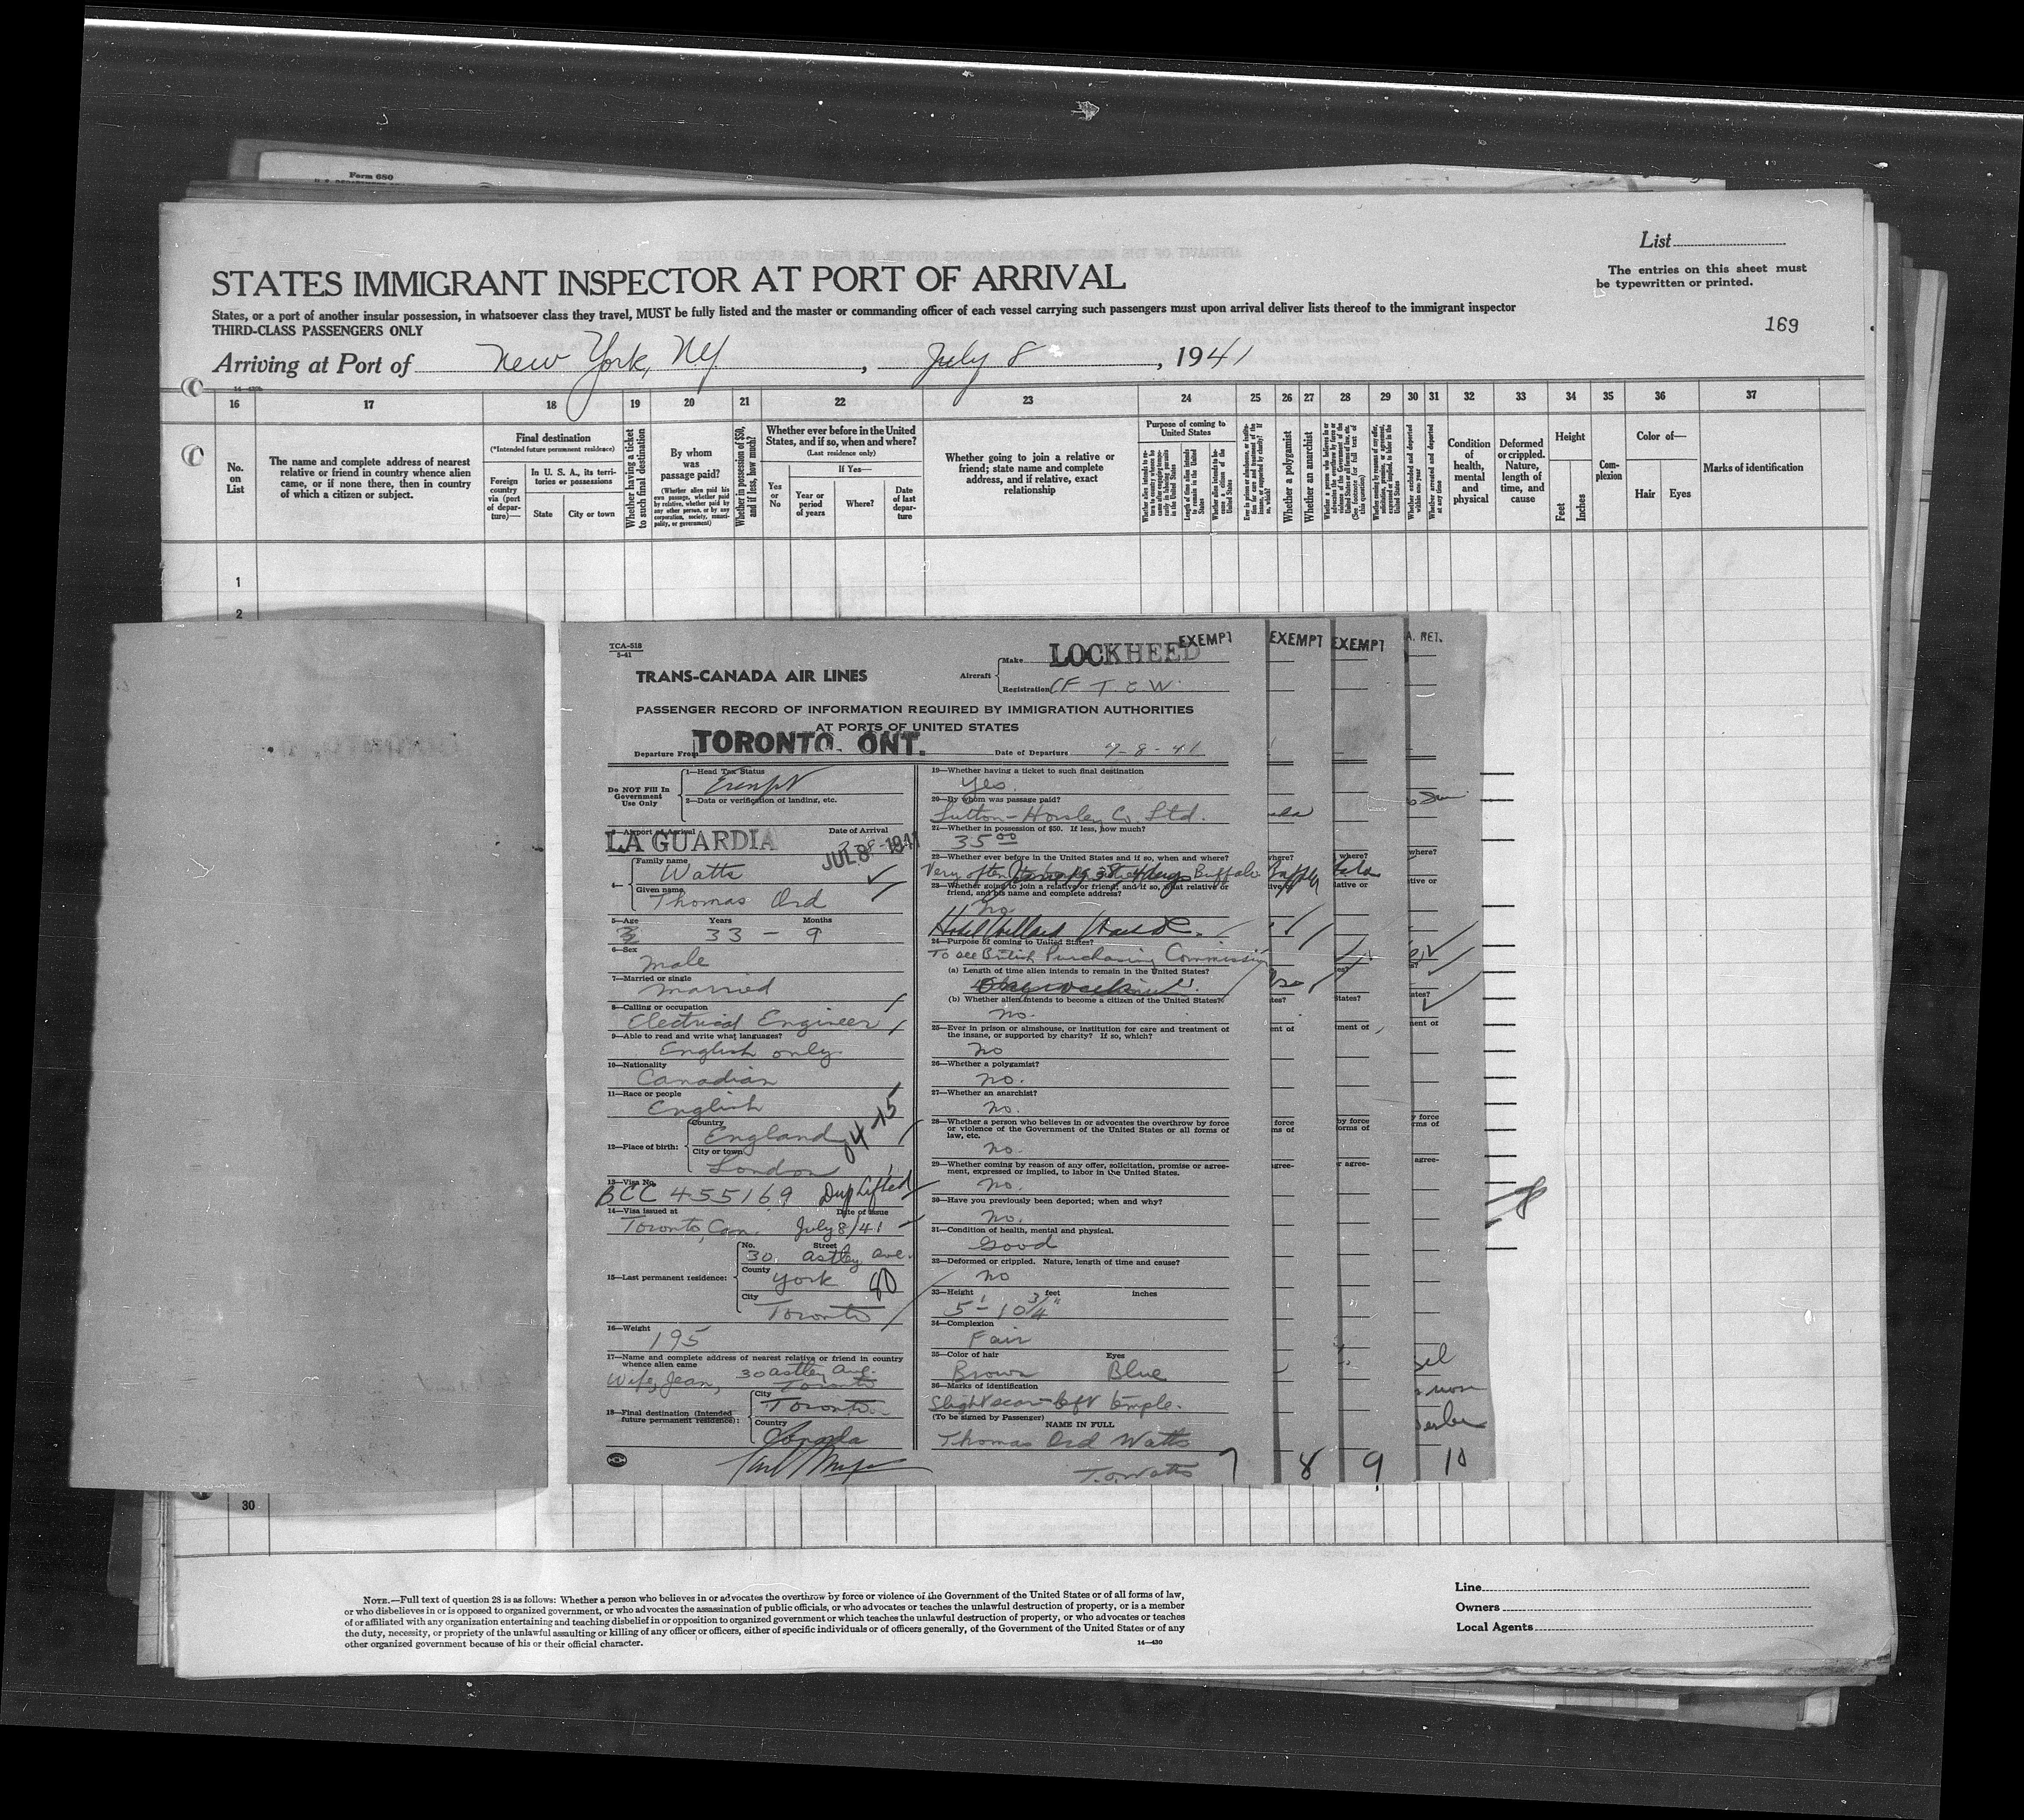 Form 680
List
STATES IMMIGRANT INSPECTOR AT PORT OF ARRIVAL
The entries on this sheet must
be typewritten or printed.
States, or a port of another insular possession, in whatsoever class they travel, MUST be fully listed and the master or commanding officer of each vessel carrying such passengers must upon arrival deliver lists thereof to the immigrant inspector
THIRD-CLASS PASSENGERS ONLY
169
Arriving at Port of New York, N.Y., July 8, 1941
16 17 18 19 20 21 22 23 24 25 26 27 28 29 30 31 32 33 34 35 36 37
No. on List
The name and complete address of nearest relative or friend in country whence alien came, or if none there, then in country of which a citizen or subject.
Final destination
(*Intended future permanent residence)
Foreign country via (port of departure)—
In U. S. A., its territories or possessions
State
City or town
Whether having a ticket to such final destination
By whom was passage paid?
(Whether alien paid his own passage, whether paid by relative, whether paid by any other person, or by any corporation, society, municipality, or government)
Whether in possession of $50, and if less, how much?
Whether ever before in the United States, and if so, when and where?
(Last residence only)
Yes or No
If Yes—
Year or period of years
Where?
Date of last departure
Whether going to join a relative or friend; state name and complete address, and if relative, exact relationship
Purpose of coming to United States
Whether a polygamist
Whether an anarchist
Condition of health, mental and physical
Deformed or crippled. Nature, length of time, and cause
Height
Feet
Inches
Complexion
Color of—
Hair
Eyes
Marks of identification
1
2
TCA-518
5-41
TRANS-CANADA AIR LINES
Aircraft
Make LOCKHEED
EXEMPT
EXEMPT
EXEMPT
Registration CF T.C.W.
PASSENGER RECORD OF INFORMATION REQUIRED BY IMMIGRATION AUTHORITIES
AT PORTS OF UNITED STATES
Departure From TORONTO, ONT.
Date of Departure 7-8-41
Do NOT Fill In Government Use Only
1—Head Tax Status
Exempt
2—Data or verification of landing, etc.
3—Airport of Arrival
LA GUARDIA
Date of Arrival
JUL 8 1941
4—
Family name
Watts
Given name
Thomas Ord
5—Age Years Months
33 - 9
6—Sex
Male
7—Married or single
Married
8—Calling or occupation
Electrical Engineer
9—Able to read and write what languages?
English only
10—Nationality
Canadian
11—Race or people
English
12—Place of birth:
Country
England
City or town
London
13—Visa No.
BCC 455169 Dup Lifted
14—Visa issued at Date of issue
Toronto, Can. July 8/41
15—Last permanent residence:
No. Street
30 Astley Ave.
County
York
City
Toronto
16—Weight
195
17—Name and complete address of nearest relative or friend in country
whence alien came
Wife, Jean, 30 Astley Ave.
Toronto
18—Final destination (Intended
future permanent residence):
City
Toronto
Country
Canada
19—Whether having a ticket to such final destination
Yes.
20—By whom was passage paid?
Sutton-Horsley Co. Ltd.
21—Whether in possession of $50. If less, how much?
35 00
22—Whether ever before in the United States and if so, when and where?
Very often Buffalo
23—Whether going to join a relative or friend, and if so, what relative or
friend, and his name and complete address?
No.
Hotel Willard
24—Purpose of coming to United States?
To see British Purchasing Commission
(a) Length of time alien intends to remain in the United States?
(b) Whether alien intends to become a citizen of the United States?
no.
25—Ever in prison or almshouse, or institution for care and treatment of
the insane, or supported by charity? If so, which?
no
26—Whether a polygamist?
no.
27—Whether an anarchist?
no.
28—Whether a person who believes in or advocates the overthrow by force
or violence of the Government of the United States or all forms of
law, etc.
No.
29—Whether coming by reason of any offer, solicitation, promise or agree-
ment, expressed or implied, to labor in the United States.
No.
30—Have you previously been deported; when and why?
No.
31—Condition of health, mental and physical.
Good
32—Deformed or crippled. Nature, length of time and cause?
no
33—Height feet inches
5' - 10 3/4"
34—Complexion
Fair
35—Color of hair Eyes
Brown Blue
36—Marks of identification
Slight scar-left temple.
(To be signed by Passenger)
NAME IN FULL
Thomas Ord Watts
T.O. Watts
7 8 9 10
30
NOTE.—Full text of question 28 is as follows: Whether a person who believes in or advocates the overthrow by force or violence of the Government of the United States or of all forms of law,
or who disbelieves in or is opposed to organized government, or who advocates the assassination of public officials, or who advocates or teaches the unlawful destruction of property, or is a member
of or affiliated with any organization entertaining and teaching disbelief in or opposition to organized government or which teaches the unlawful destruction of property, or who advocates or teaches
the duty, necessity, or propriety of the unlawful assaulting or killing of any officer or officers, either of specific individuals or of officers generally, of the Government of the United States or of any
other organized government because of his or their official character.
14—430
Line
Owners
Local Agents